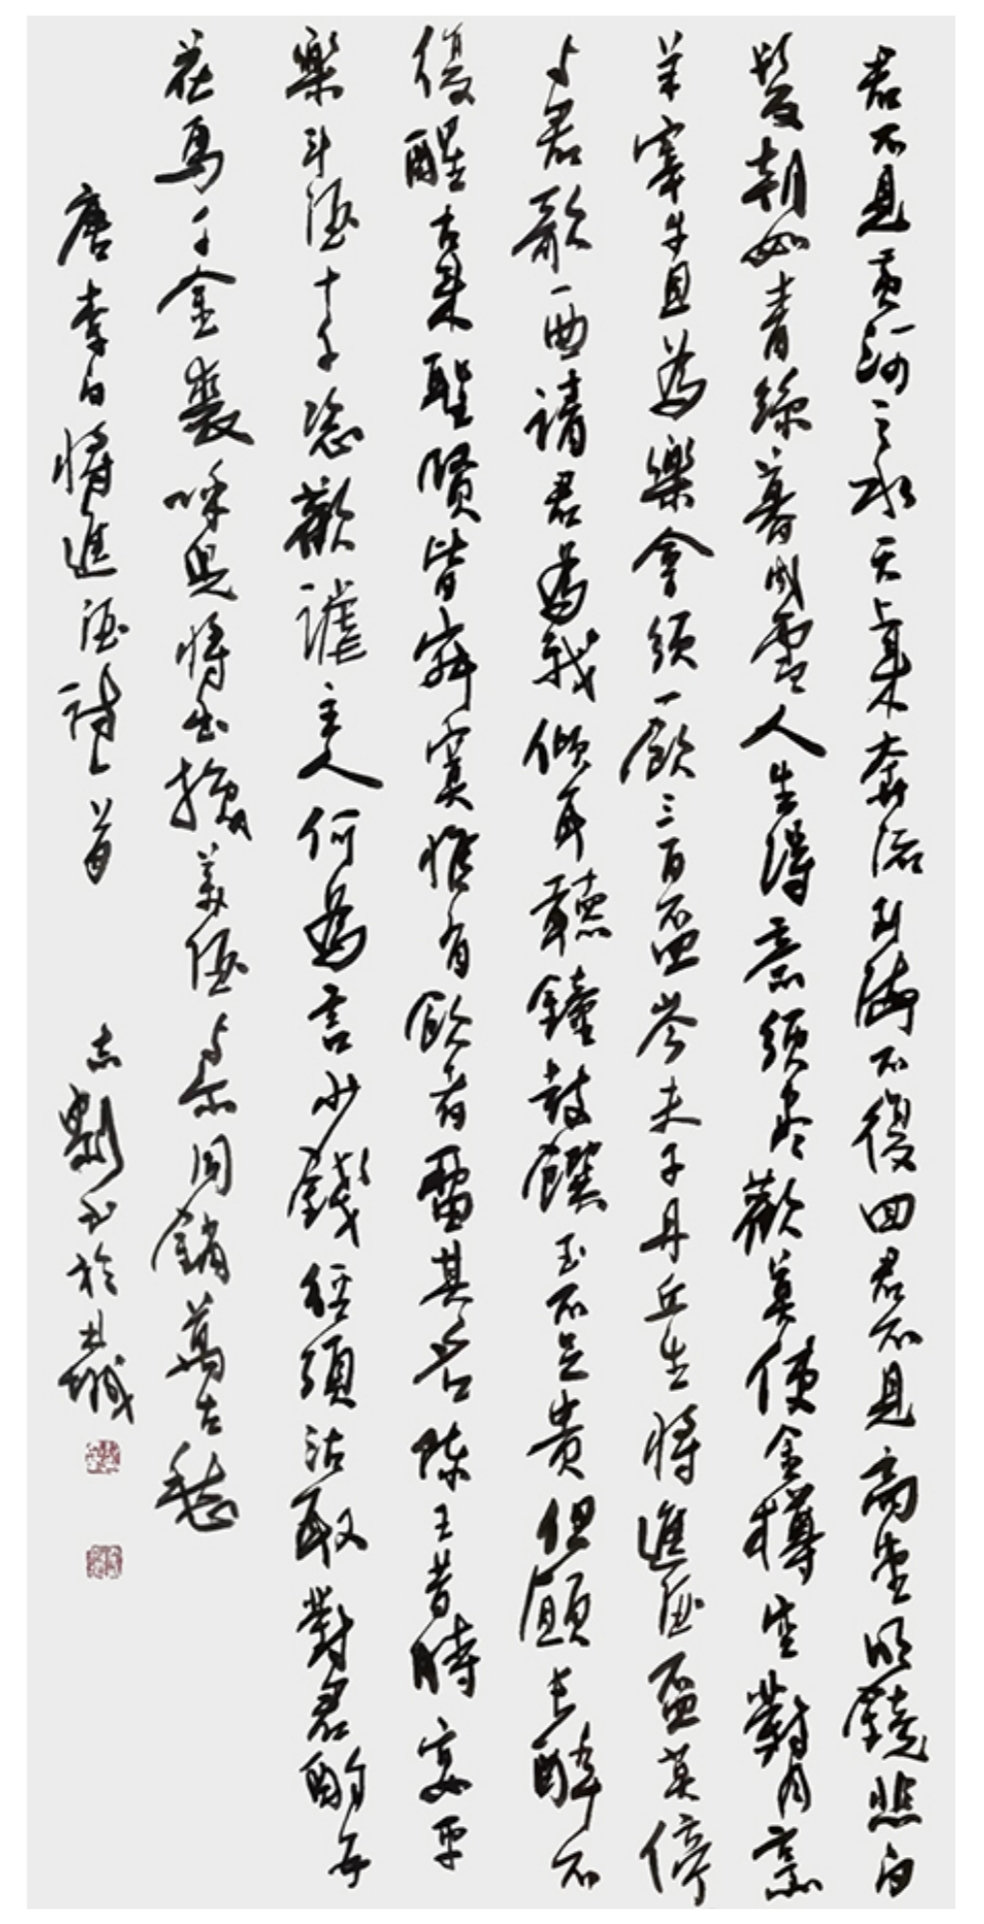 君不見黃河之水天上來奔流到海不復回君不見高堂明鏡悲白
髮朝如青絲暮成雪人生得意須盡歡莫使金樽空對月烹
羊宰牛且為樂會須一飲三百盃岑夫子丹丘生將進酒盃莫停
与君歌一曲請君為我傾耳聽鐘鼓饌玉不足貴但願長醉不
復醒古來聖賢皆寂寞惟有飲者留其名陳王昔時宴平
樂斗酒十千恣歡謔主人何為言少錢徑須沽取對君酌五
花馬千金裘呼兒將出換美酒与尔同銷萬古愁
唐李白將進酒詩一首 志書於城